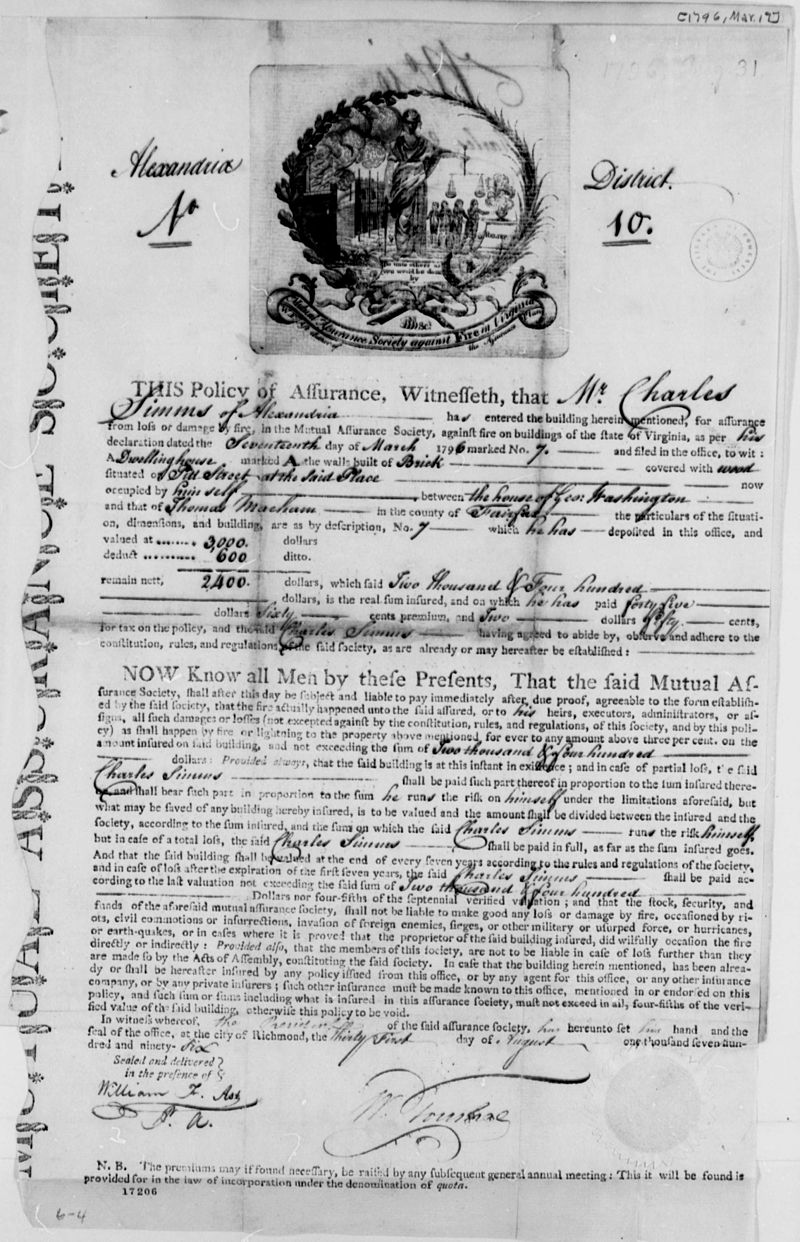 [1796, Mar. 17]
31
Alexandria
District.
No
10.
Do unto others as
you would be done
by
Mutual Assurance Society against Fire in Virginia
THIS Policy of Aſſurance, Witneſſeth, that Mr. Charles
Simms of Alexandria has entered the building herein mentioned, for aſſurance
from loſs or damage by fire, in the Mutual Aſſurance Society, againſt fire on buildings of the ſtate of Virginia, as per his
declaration dated the Seventeenth day of March 1796 marked No. 7. and filed in the office, to wit:
A Dwelling houſe marked A the walls built of Brick covered with wood
ſituated on Pitt Street at the said Place now
occupied by himself between the house of Geo: Washington
and that of Thomas in the county of Fairfax the particulars of the ſituati-
on, dimenſions, and building, are as by deſcription, No. 7 which he has depoſited in this office, and
valued at ........ 3,000. dollars
deduct .......... 600 ditto.
remain nett, 2,400. dollars, which ſaid Two thousand & Four hundred
dollars, is the real ſum inſured, and on which he has paid forty five
dollars Sixty cents premium, and Two dollars fifty cents,
for tax on the policy, and the ſaid Charles Simms having agreed to abide by, obſerve and adhere to the
conſtitution, rules, and regulations of the ſaid ſociety, as are already or may hereafter be eſtabliſhed:
NOW Know all Men by theſe Preſents, That the ſaid Mutual Aſ-
ſurance Society, ſhall after this day be ſubject and liable to pay immediately after due proof, agreeable to the form eſtabliſh-
ed by the ſaid ſociety, that the fire actually happened unto the ſaid aſſured, or to his heirs, executors, adminiſtrators, or aſ-
ſigns, all ſuch damages or loſſes (not excepted againſt by the conſtitution, rules, and regulations, of this ſociety, and by this poli-
cy) as ſhall happen by fire or lightning to the property above mentioned, for ever to any amount above three per cent. on the
amount inſured on ſaid building, and not exceeding the ſum of Two thousand & four hundred
dollars: Provided always, that the ſaid building is at this inſtant in exiſtence; and in caſe of partial loſs, the ſaid
Charles Simms ſhall be paid ſuch part thereof in proportion to the ſum inſured there-
and ſhall bear ſuch part in proportion to the ſum he runs the riſk on himself under the limitations aforeſaid, but
what may be ſaved of any building hereby inſured, is to be valued and the amount ſhall be divided between the inſured and the
ſociety, according to the ſum inſured, and the ſum on which the ſaid Charles Simms runs the riſk himself
but in caſe of a total loſs, the ſaid Charles Simms ſhall be paid in full, as far as the ſum inſured goes.
And that the ſaid building ſhall be valued at the end of every ſeven years according to the rules and regulations of the ſociety,
and in caſe of loſs after the expiration of the firſt ſeven years, the ſaid Charles Simms ſhall be paid ac-
cording to the laſt valuation not exceeding the ſaid ſum of Two thousand & four hundred
Dollars nor four-fifths of the ſeptennial verified valuation; and that the ſtock, ſecurity, and
funds of the aforeſaid mutual aſſurance ſociety, ſhall not be liable to make good any loſs or damage by fire, occaſioned by ri-
ots, civil commotions or inſurrections, invaſion of foreign enemies, ſieges, or other military or uſurped force, or hurricanes,
or earth-quakes, or in caſes where it is proved that the proprietor of the ſaid building inſured, did wilfully occaſion the fire
directly or indirectly: Provided alſo, that the members of this ſociety, are not to be liable in caſe of loſs further than they
are made ſo by the Acts of Aſſembly, conſtituting the ſaid ſociety. In caſe that the building herein mentioned, has been alrea-
dy or ſhall be hereafter inſured by any policy iſſued from this office, or by any agent for this office, or any other inſurance
company, or by any private inſurers; ſuch other inſurance muſt be made known to this office, mentioned in or endorſed on this
policy, and ſuch ſum or ſums including what is inſured in this aſſurance ſociety, muſt not exceed in all, four-fifths of the veri-
fied value of the ſaid building, otherwiſe this policy to be void.
In witneſs whereof, the President of the ſaid aſſurance ſociety, has hereunto ſet his hand and the
ſeal of the office, at the city of Richmond, the thirty First day of August one thouſand ſeven hun-
dred and ninety-Six
Sealed and delivered
in the preſence of
William F. Ast
P. A.
N. B. The premiums may if found neceſſary, be raiſed by any ſubſequent general annual meeting: This it will be found is
provided for in the law of incorporation under the denomination of quota.
17206
6-4
MUTUAL ASSURANCE SOCIETY.